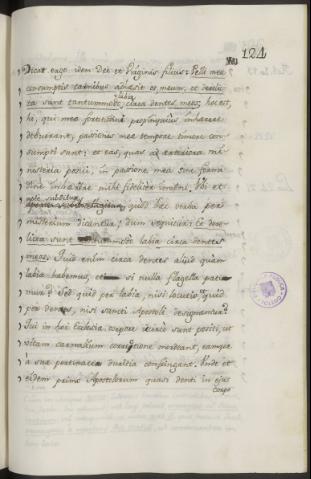 124
Dicat ergo idem Dei et Virginis filius: Pelli meæ
consumptis carnibus adhæsit os meum, et derelic
labia
ta sunt tantummodo circa dentes meos; hoc est,
hi, qui mea fortitudini propinquius inhærere
debuerant, passionis meæ tempore timore con-
sumpti sunt: et eas, quas ad exteriora mi-
nisteria habui, in passione mea sine formi
dine inhærere mihi fideliter inveni. Ubi et
note subtilius
quod hæc verba per
mysterium dicantur, dum sequitur: Et dere-
licta sunt tantummodo labia circa dentes
meos. Quid enim circa dentes aliud quam
labia habemus, et si nulla flagella patia
mur? Sed quid per labia, nisi locutio; quid
per dentes, nisi sancti Apostoli designantur?
Qui in hoc Ecclesiæ corpore sunt positi, ut
vitam carnalium correptione mordeant, eamque
a suæ pertinaciæ duritia confringant. Unde et
eidem primo Apostolorum quasi denti in ejus
corpo